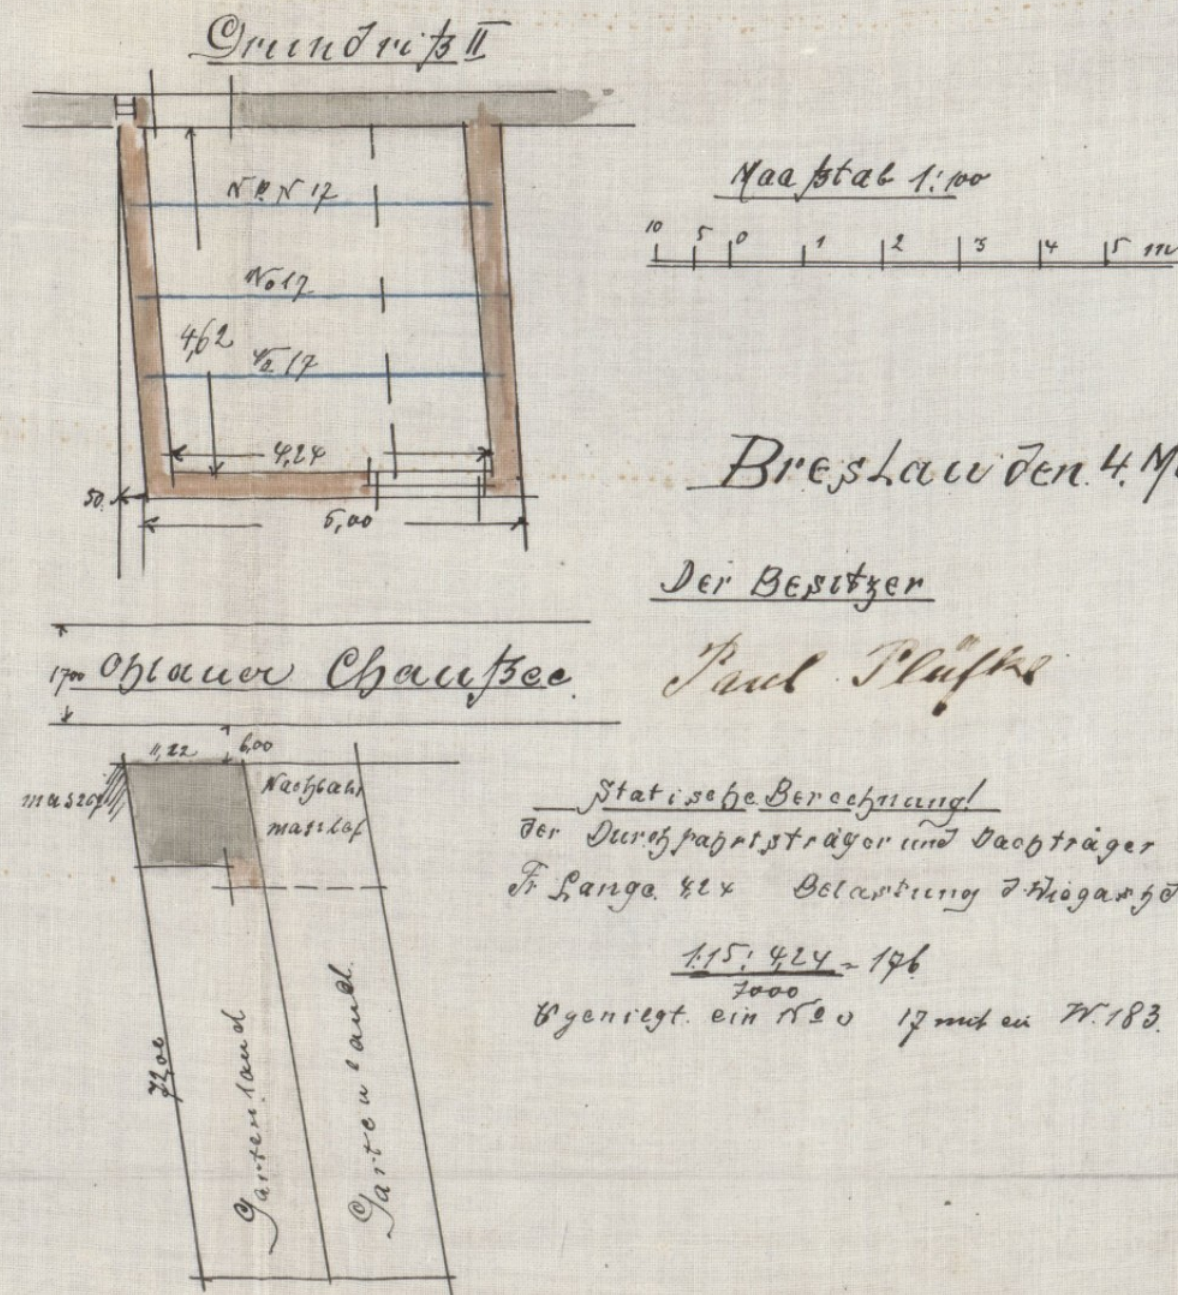 Grundriß II
No N 17
No 17
4,62
No 17
4,24
50.
5,00
Maaßtab 1:100
10 5 0 1 2 3 4 5 m
Breslau den 4.
Der Besitzer
Paul
1700 Ohlauer Chaußee.
11,22 6,00
massiv
Nachbar
massiv
72,00
Gartenland
Gartenland.
Statische Berechnung!
der Durchfahrtsträger und Dachträger
Fr Länge 4,24 Belastung
1.15: 4,24 = 176
7000
genügt ein No 17 mit W. 183.